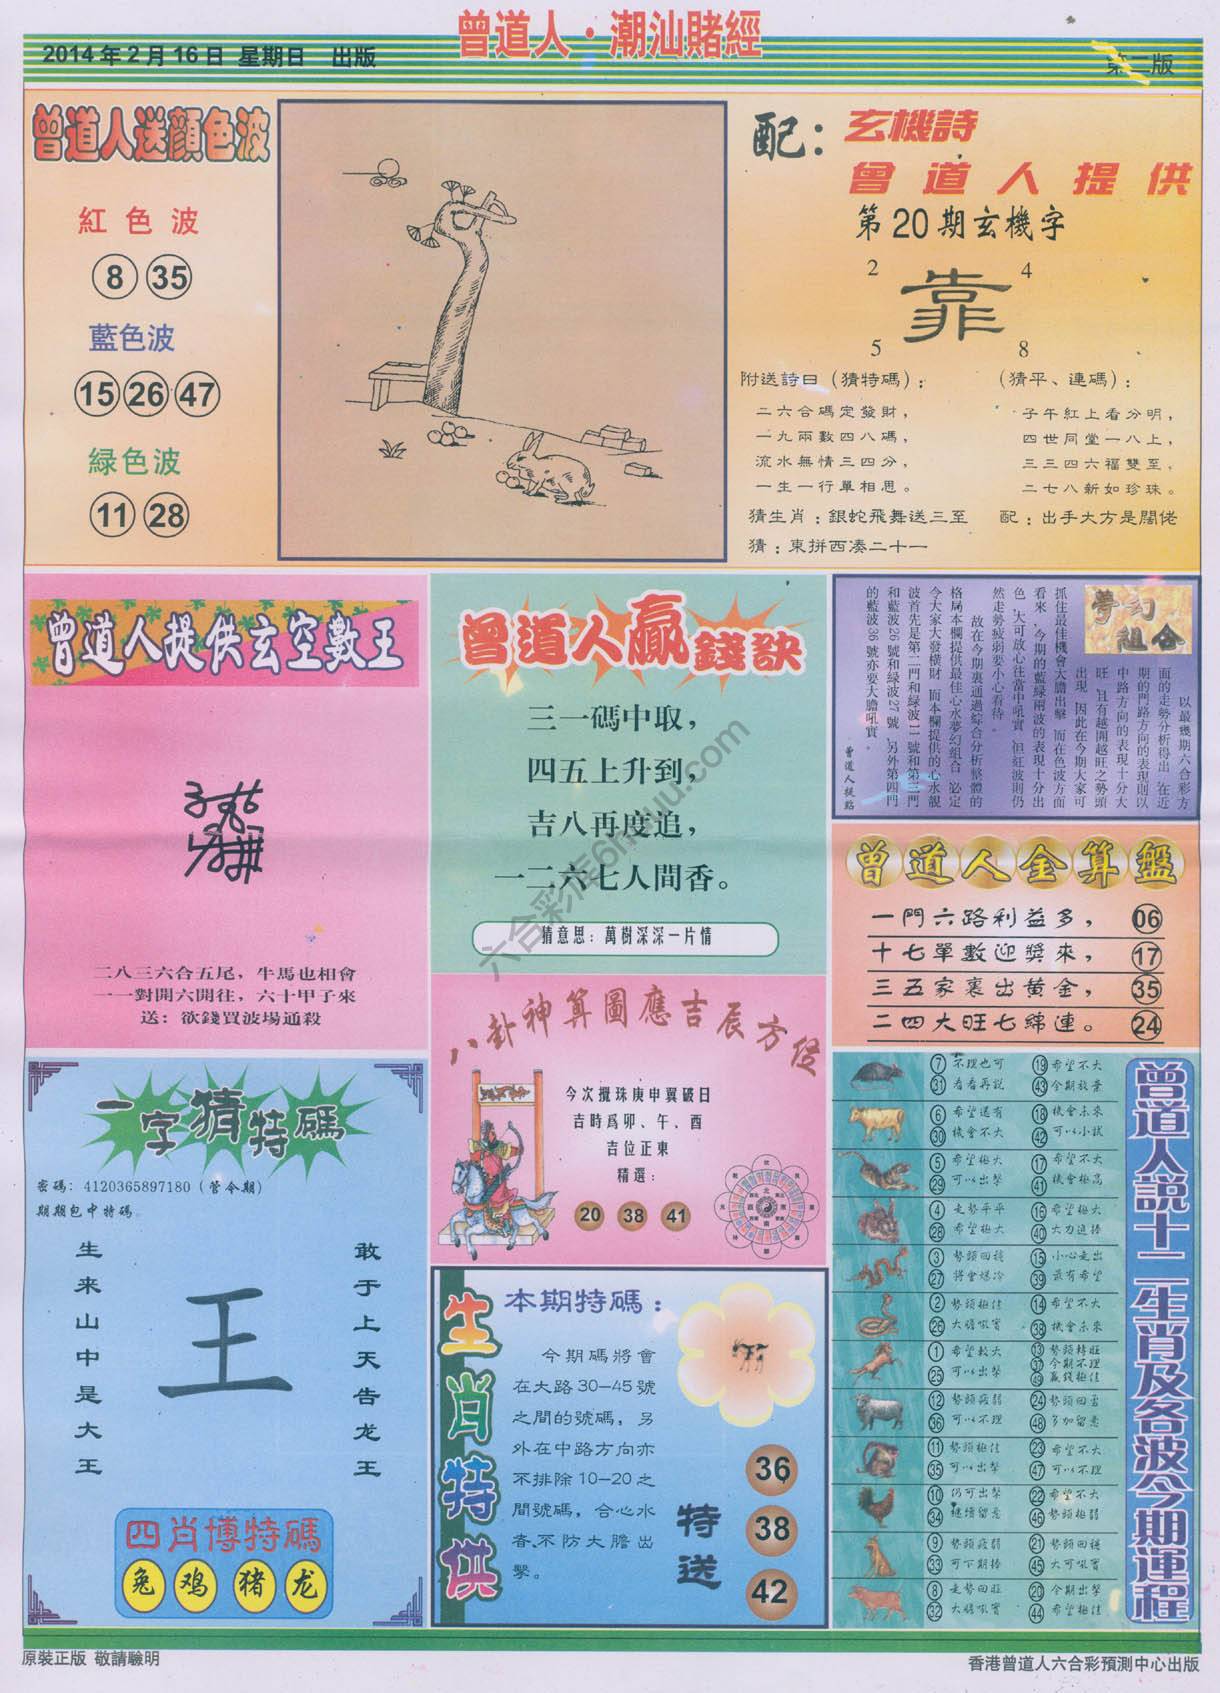 曾道人·潮汕賭經
2014年2月16日 星期日 出版
第二版
曾道人送顔色波
紅色波
8 35
藍色波
15 26 47
緑色波
11 28
配：
玄機詩
曾道人提供
第20期玄機字
2 4
靠
5 8
附送詩曰（猜特碼）：
二六合碼定發財，
一九兩數四八碼，
流水無情三四分，
一生一行單相思。
（猜平、連碼）：
子午紅上看分明，
四世同堂一八上，
三三四六福雙至，
二七八新如珍珠。
猜生肖：銀蛇飛舞送三至
配：出手大方是闊佬
猜：東拼西凑二十一
曾道人提供玄空數王
二八三六合五尾，牛馬也相會
一一對開六開往，六十甲子來
送：欲錢買波場通殺
曾道人贏錢訣
三一碼中取，
四五上升到，
吉八再度追，
一二六七人間香。
猜意思：萬樹深深一片情
夢幻組合
以最幾期六合彩方
面的走勢分析得出，在近
期的門路方向的表現則以
中路方向的表現十分大
旺，且有越開越旺之勢頭
出現，因此在今期大家可
抓住最佳機會大膽出擊，而在色波方面
看來，今期的藍緑兩波的表現十分出
色，大可放心往當中吼實，但紅波則仍
然走勢疲弱要小心看待。
故在今期裏通過綜合分析整體的
格局本欄提供最佳心水夢幻組合，必定
令大家大發橫財，而本欄提供的心水靚
波首先是第二門和緑波11號和第三門
和藍波26號和緑波27號，另外第四門
的藍波36號亦要大膽吼實。
曾道人提點
曾道人金算盤
一門六路利益多， 06
十七單數迎獎來， 17
三五家裏出黄金， 35
二四大旺七綿連。 24
八卦神算圖應吉辰方位
今次攪珠庚申翼破日
吉時爲卯、午、酉
吉位正東
精選：
20 38 41
一字猜特碼
密碼：4120365897180（管令期）
期期包中特碼。
生来山中是大王
王
敢于上天告龙王
四肖博特碼
兔 鸡 猪 龙
生肖特供
本期特碼：
今期碼將會
在大路30—45號
之間的號碼，另
外在中路方向亦
不排除10—20之
間號碼，合心水
者，不防大膽出
擊。
特送
36
38
42
曾道人説十二生肖及各波今期運程
7 不理也可 19 希望不大
31 看看再説 43 今期放棄
6 希望還有 18 機會未來
30 機會不大 42 可以小試
5 希望極大 17 希望不大
29 可以出擊 41 機會極高
4 走勢平平 16 希望極大
28 希望極大 40 大力追捧
3 勢頭回穩 15 小心走出
27 將會爆冷 39 最有希望
2 勢頭極佳 14 希望不大
26 大膽吼實 38 機會未來
1 希望較大 13 勢頭轉旺
25 可以出擊 37 今期不理
49 贏錢極佳
12 勢頭疲弱 24 勢頭回雪
36 可以不理 48 多加留意
11 勢頭極佳 23 希望不大
35 可以出擊 47 可以不理
10 仍可出擊 22 希望不大
34 繼續留意 46 勢頭極弱
9 勢頭疲弱 21 勢頭回穩
33 可下期捧 45 大可吼實
8 走勢回旺 20 今期出擊
32 大膽吼實 44 希望極佳
原裝正版 敬請驗明
香港曾道人六合彩預測中心出版